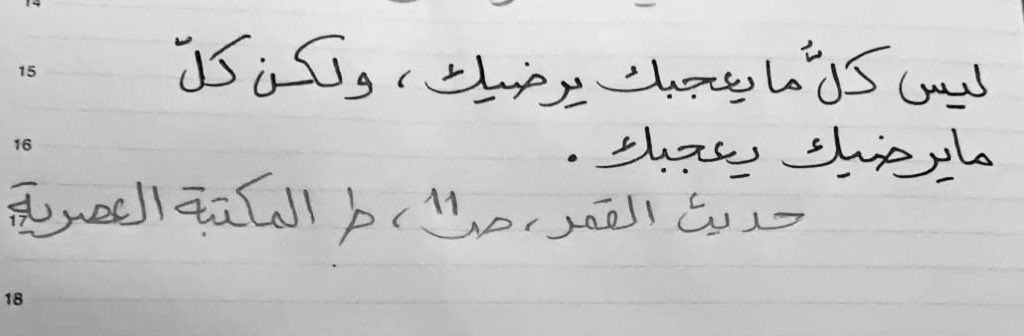 14
15 ليس كلُّ ما يعجبك يرضيك ، ولكن كلّ
16 ما يرضيك يعجبك .
17 حديث القمر ، صـ 11 ، ط المكتبة العصرية
18